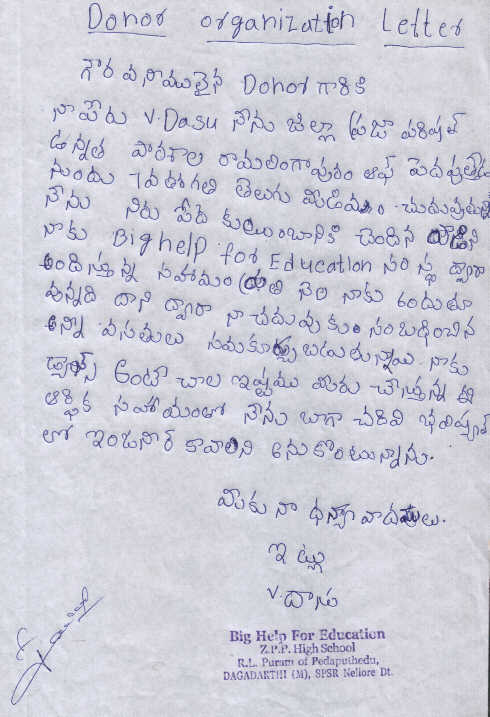 Donor organization Letter
గౌరవనాములైన Donor గారికి
నా పేరు V. Dasu నేను జిల్లా ప్రజా పరిషత్
ఉన్నత పాఠశాల రామలింగాపురం ఆఫ్ పెదపుత్తేడు
నందు 7వతరగతి తెలుగు మీడియం చదువుతున్న
నేను నిరు పేద కుటుంబానికి చెందిన
నాకు Big help for Education సంస్థ ద్వారా
అందిస్తున్న సహాయం ప్రతి నెల నాకు అందుతూ
వున్నది దాని ద్వారా నా చదువుకు సంబంధించిన
అన్ని వసతులు సమకూర్చబడుతున్నాయి. నాకు
డ్యాన్స్ అంటే చాల ఇష్టము మీరు చేస్తున్న ఈ
ఆర్థిక సహాయంతో నేను బాగా చదివి భవిష్యత్
లో ఇంజనీర్ కావాలని అనుకొంటున్నాను.
మీకు నా ధన్యవాదములు.
ఇట్లు
V. దాసు
Big Help For Education
Z.P.P. High School
R.L. Puram of Pedaputhedu,
DAGADARTHI (M), SPSR Nellore Dt.